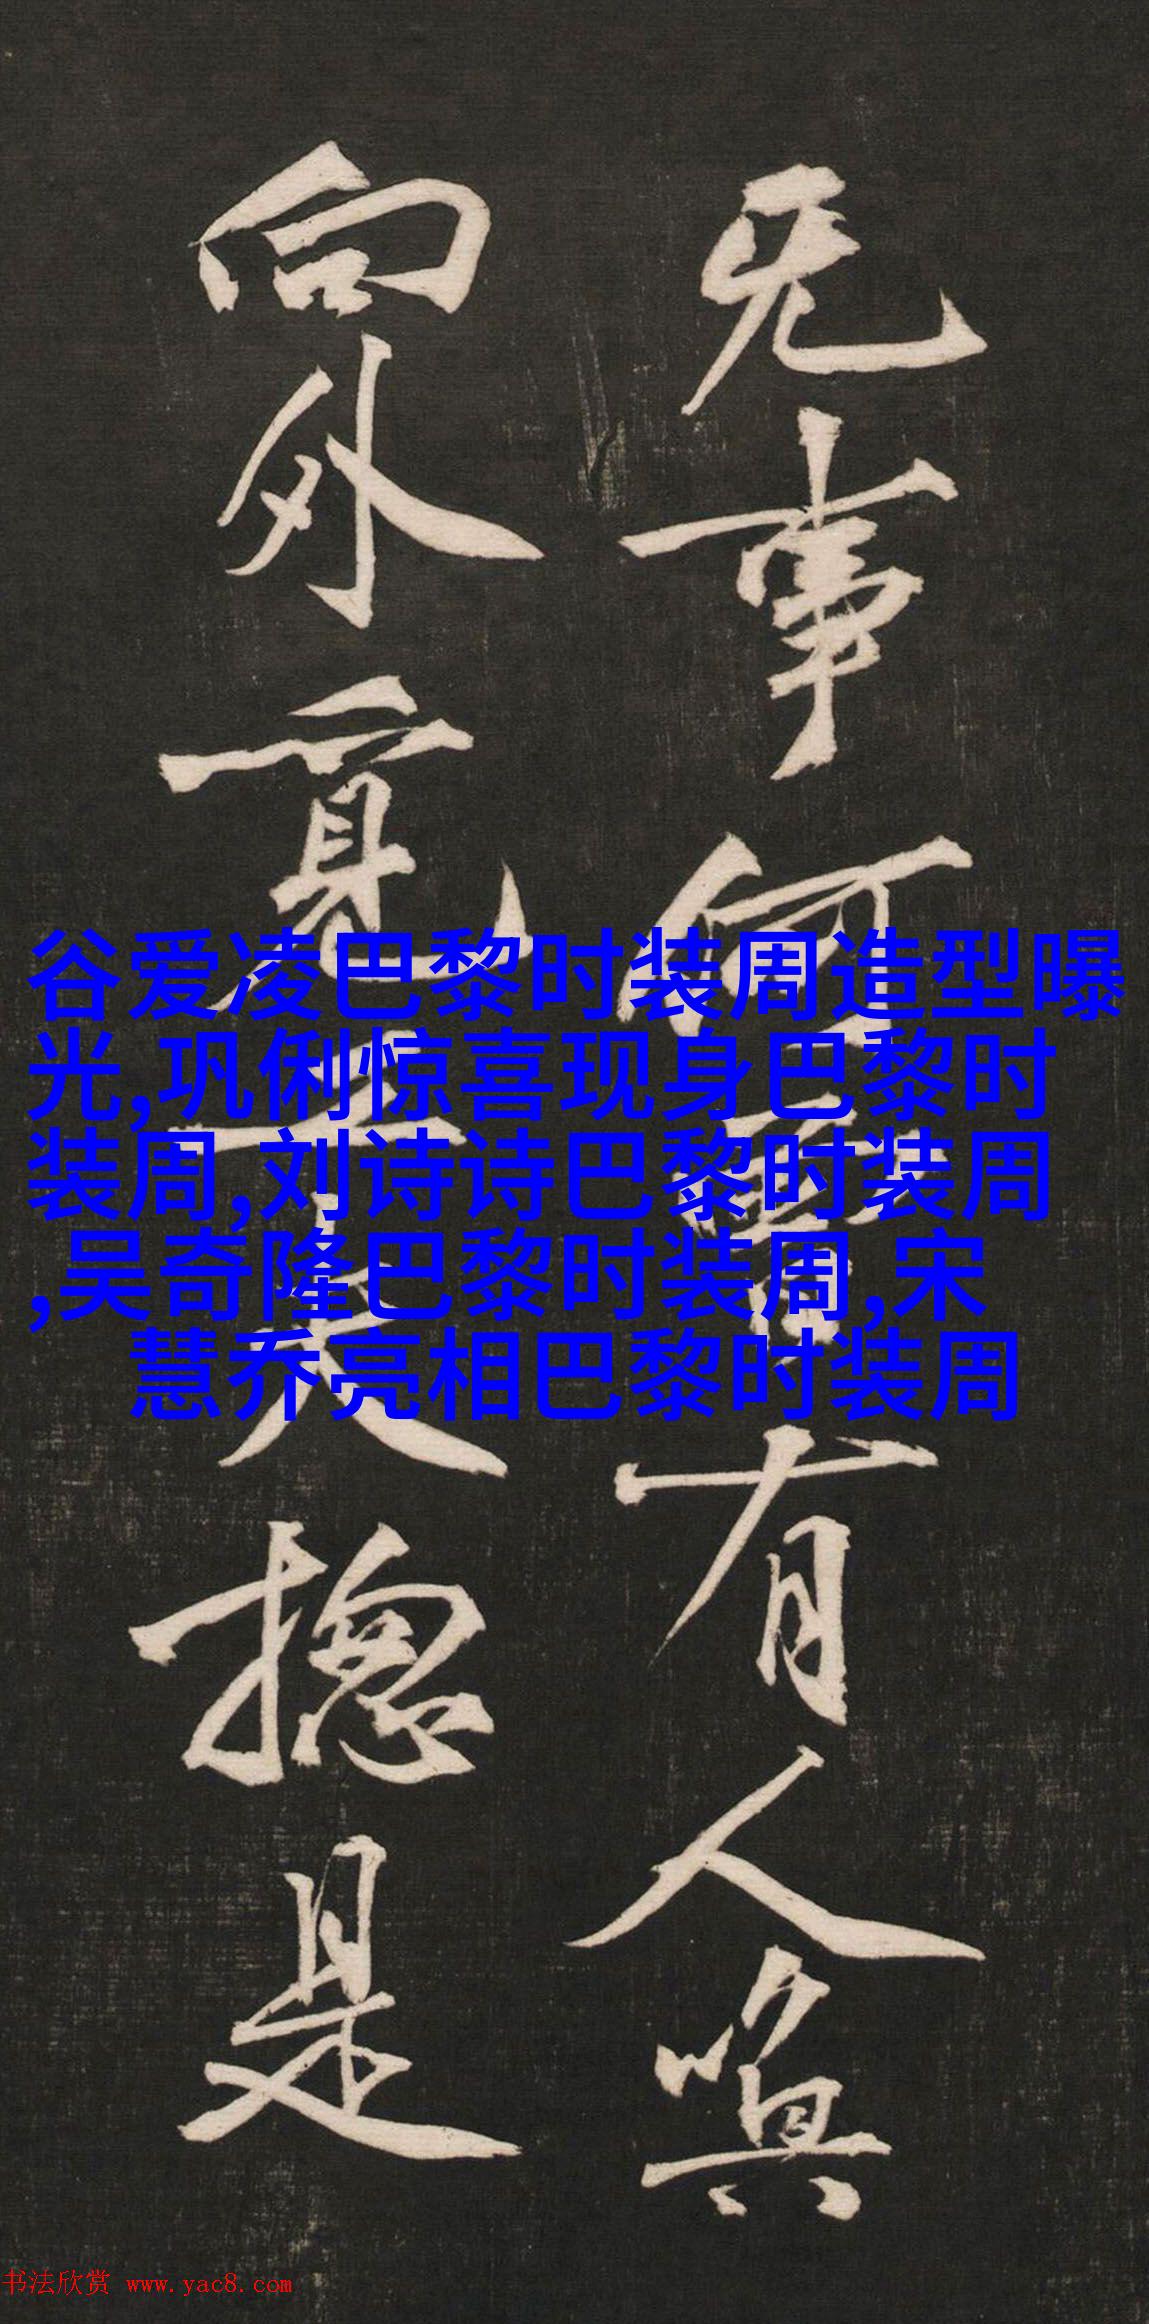 事何
有人
向外
夫揔是
谷爱凌巴黎时装周造型曝
光,巩俐惊喜现身巴黎时
装周,刘诗诗巴黎时装周
,吴奇隆巴黎时装周,宋
慧乔亮相巴黎时装周
书法欣赏 www.yac8.com